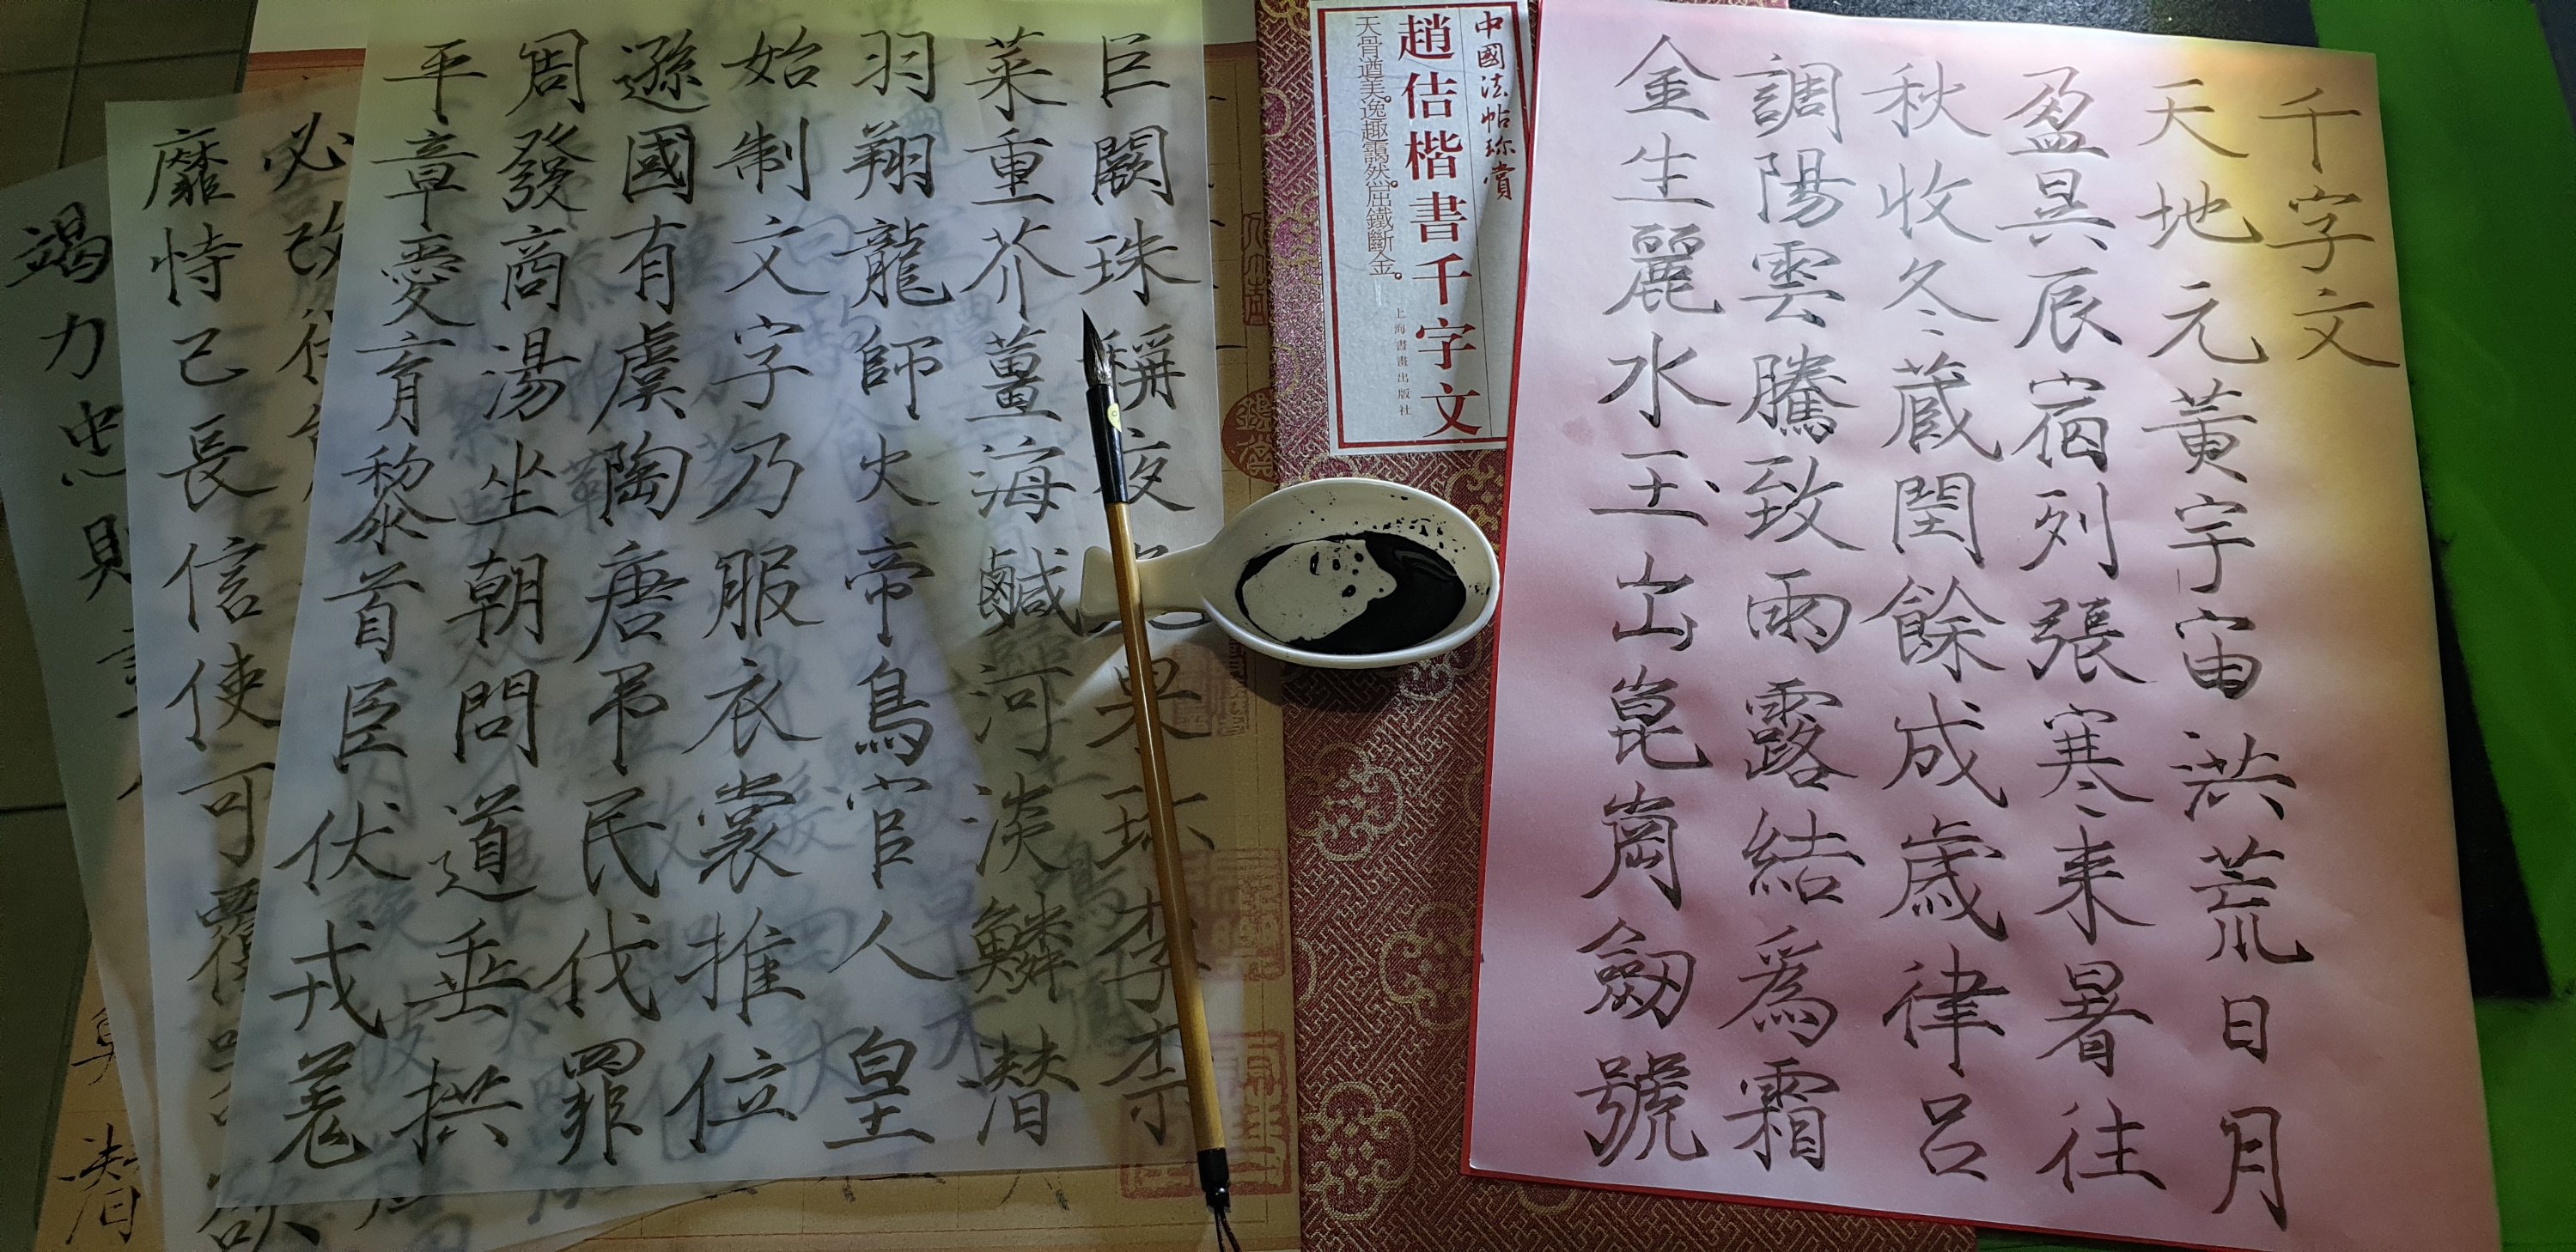 千字文
天地元黃宇宙洪荒日月
盈昃辰宿列張寒来暑往
秋收冬蔵閏餘成歳律呂
調陽雲騰致雨露結爲霜
金生麗水玉出崑崗劔號
中國法帖珍賞
趙佶楷書千字文
天骨遒美。逸趣靄然。屈鐵斷金。
上海書畫出版社
巨闕珠稱夜光果珎李柰
菜重芥薑海鹹河淡鱗潜
羽翔龍師火帝鳥官人皇
始制文字乃服衣裳推位
遜國有虞陶唐吊民伐罪
周發商湯坐朝問道垂拱
平章愛育黎首臣伏戎羌
必改
靡恃己長信使可覆器欲
竭力忠則